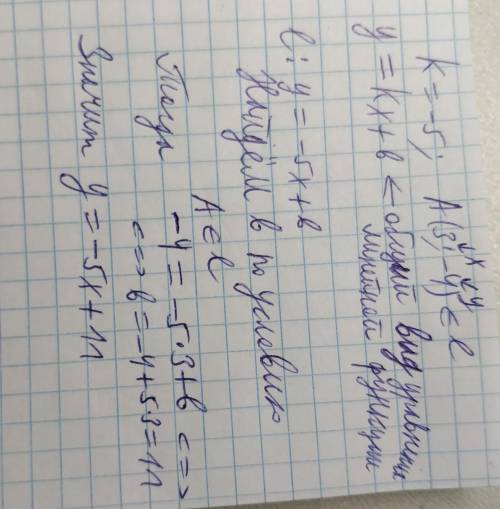 k = -5; A(3; -4) ∈ l
x y
y = kx + в ← общий вид уравнения
линейной функции
l: y = -5x + в
Найдём в по условию
A ∈ l
Тогда -4 = -5·3 + в <=>
<=> в = -4 + 5·3 = 11
Значит y = -5x + 11